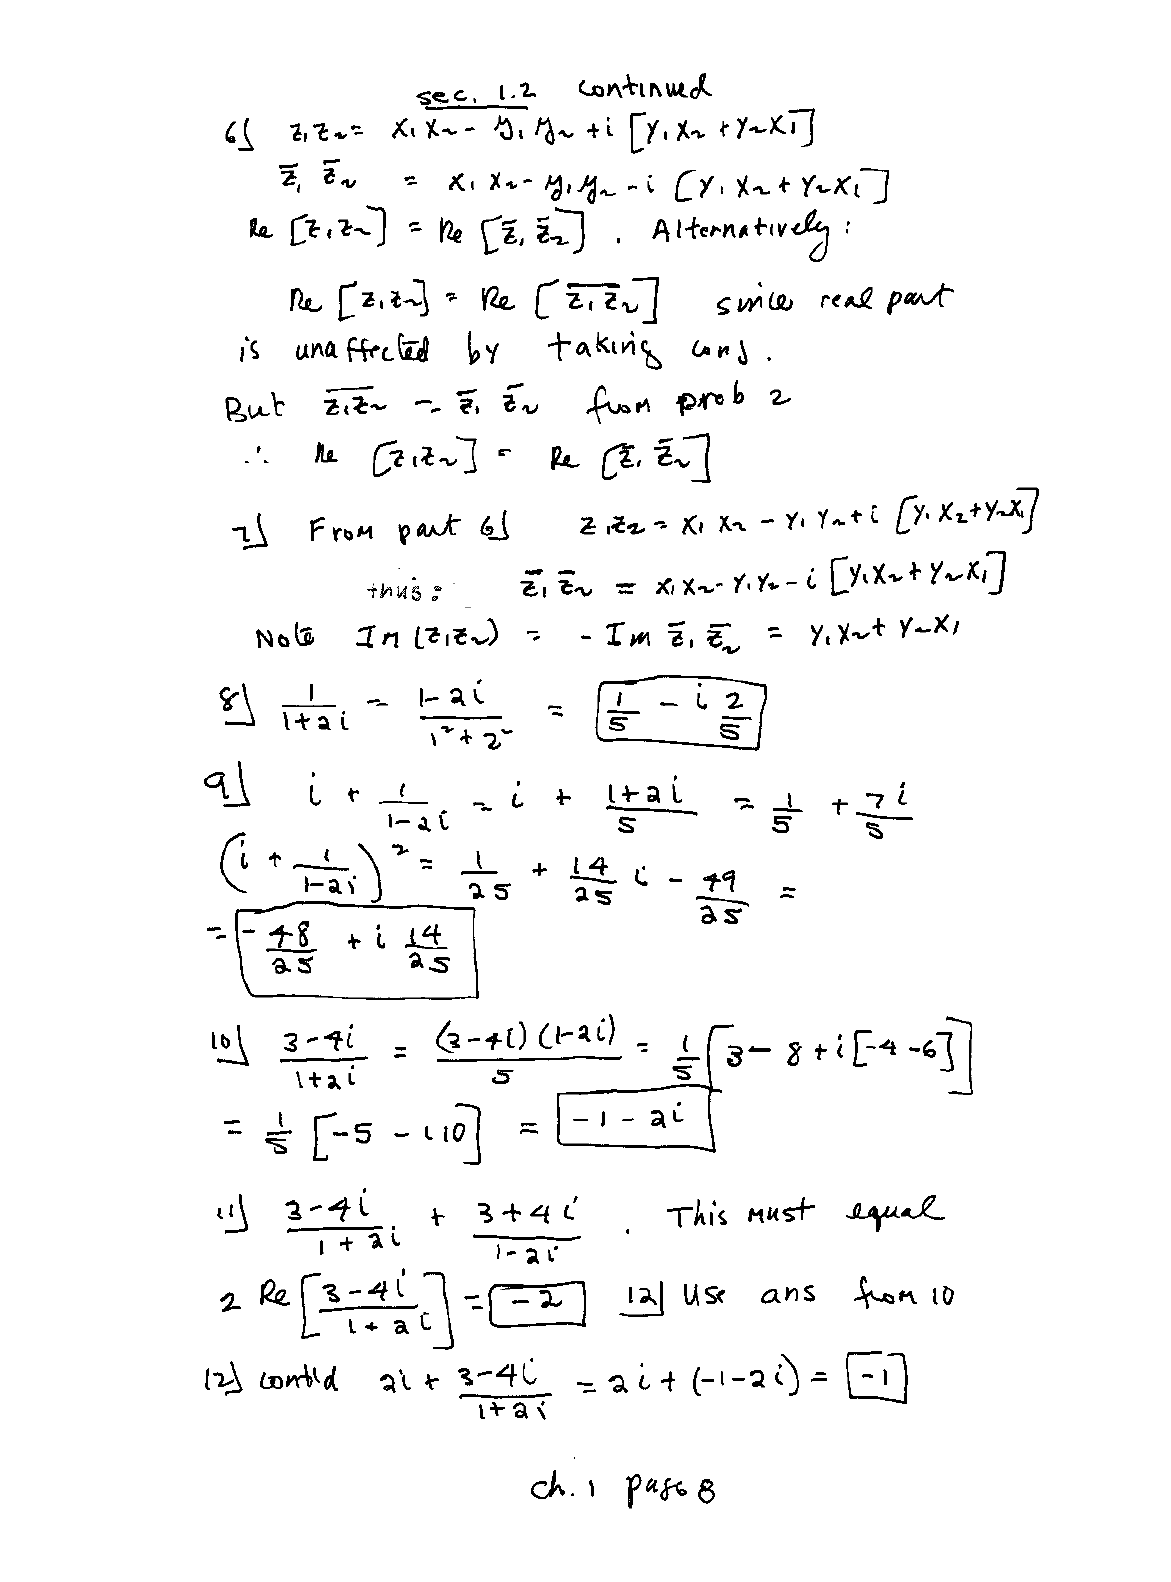 sec. 1.2 continued
6] z₁z₂ = x₁x₂ - y₁y₂ + i [y₁x₂ + y₂x₁]
z̄₁ z̄₂ = x₁x₂ - y₁y₂ - i [y₁x₂ + y₂x₁]
Re [z₁z₂] = Re [z̄₁ z̄₂] . Alternatively :
Re [z₁z₂] = Re [\overline{z₁z₂}] since real part
is unaffected by taking conj.
But \overline{z₁z₂} = z̄₁ z̄₂ from prob 2
∴ Re [z₁z₂] = Re [z̄₁ z̄₂]
7] From part 6] z₁z₂ = x₁x₂ - y₁y₂ + i [y₁x₂ + y₂x₁]
thus: z̄₁ z̄₂ = x₁x₂ - y₁y₂ - i [y₁x₂ + y₂x₁]
Note Im (z₁z₂) = - Im z̄₁ z̄₂ = y₁x₂ + y₂x₁
8] 1/(1+2i) = (1-2i)/(1²+2²) = 1/5 - i 2/5
9] i + 1/(1-2i) = i + (1+2i)/5 = 1/5 + 7i/5
(i + 1/(1-2i))² = 1/25 + 14/25 i - 49/25 =
= -48/25 + i 14/25
10] (3-4i)/(1+2i) = (3-4i)(1-2i)/5 = 1/5 [3 - 8 + i[-4 -6]]
= 1/5 [-5 - i10] = -1 - 2i
11] (3-4i)/(1+2i) + (3+4i)/(1-2i) . This must equal
2 Re [(3-4i)/(1+2i)] = -2 12] Use ans from 10
12] cont'd 2i + (3-4i)/(1+2i) = 2i + (-1-2i) = -1
ch. 1 page 8